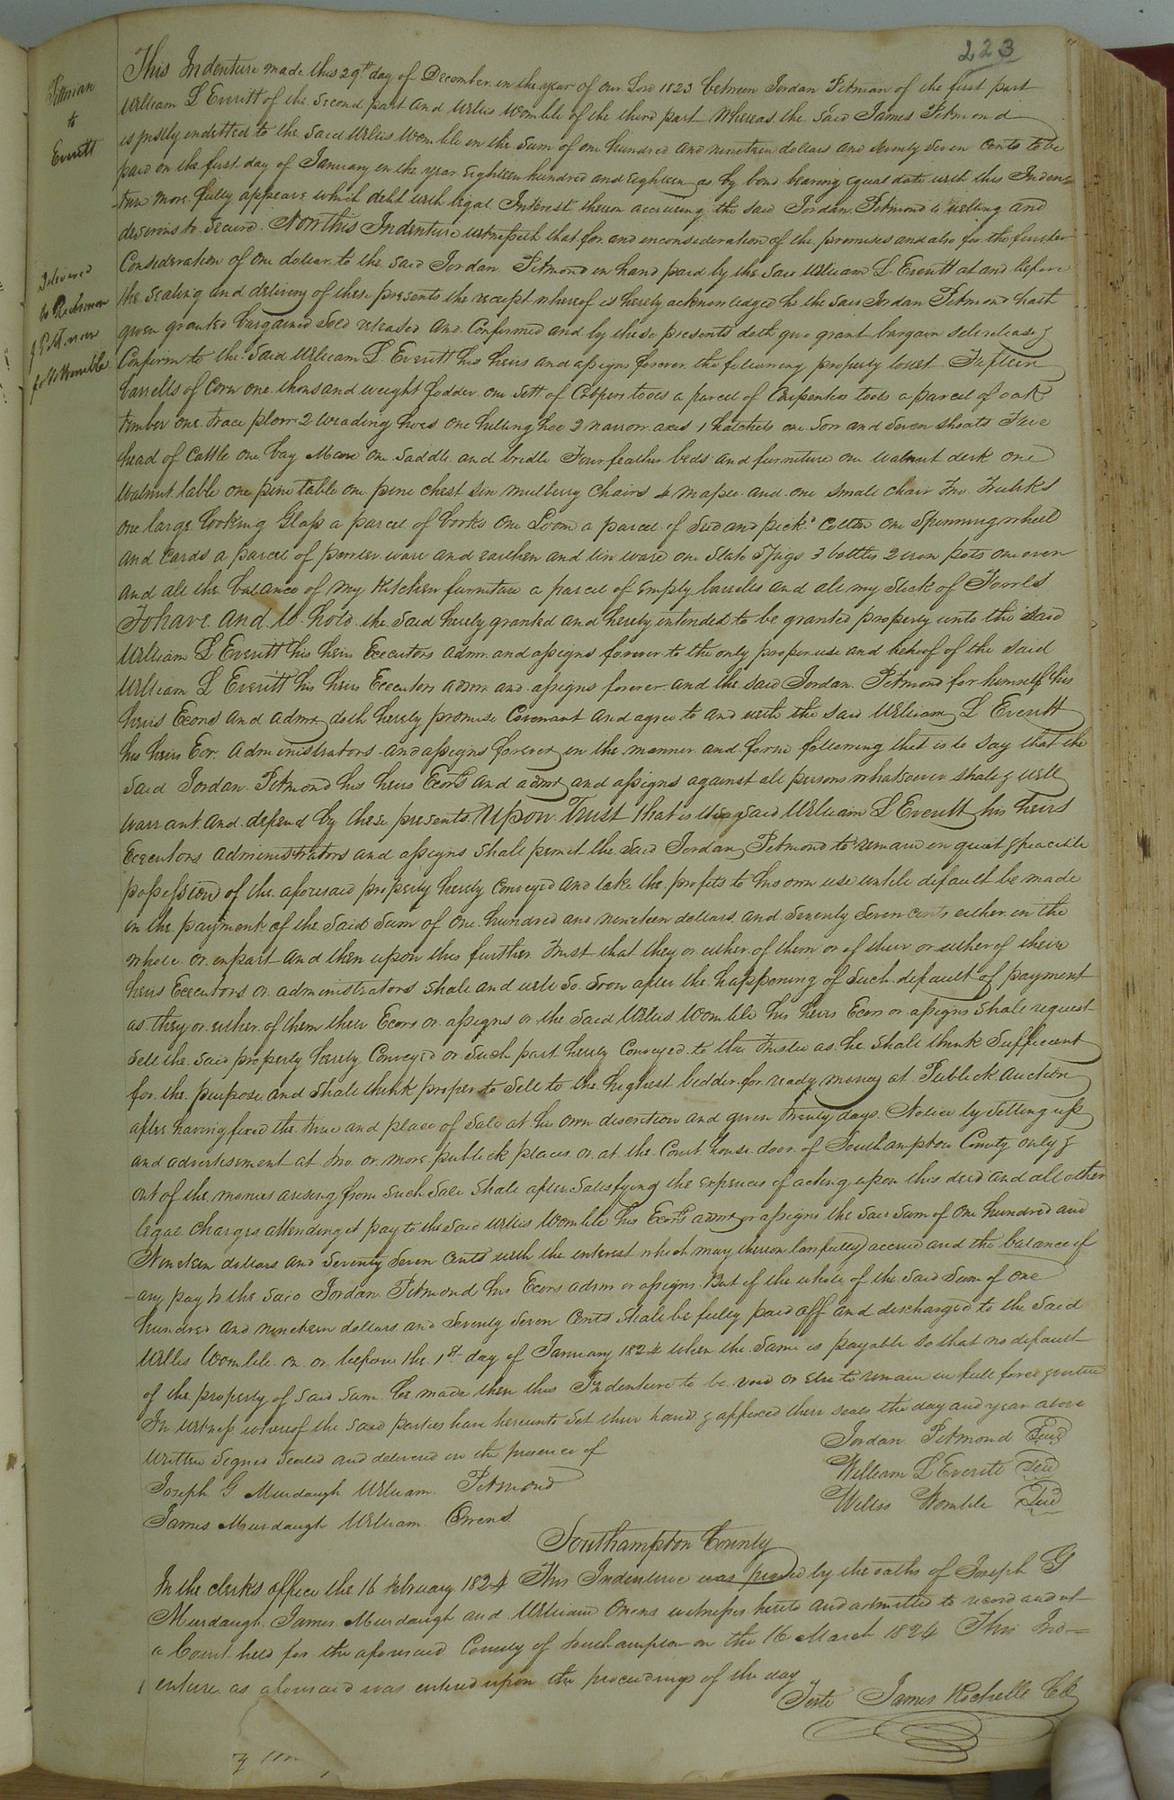 223
Pittman
to
Everitt
Delivered
for W Womble
This Indenture made this 29th day of December in the year of our Lord 1823 between Jordan Pitmon of the first part
William L Everitt of the Second part and Willis Womble of the third part Whereas the said James Pitmond
is justly indetted to the said Willis Womble in the Sum of one hundred and nineteen dollars and seventy seven Cents to be
paid on the first day of January in the year Eighteen hundred and Eighteen as by bond bearing Equal date with this Inden=
-ture more fully appears which debt with legal Interest thereon accruing the said Jordan Pitmond is willing and
desirous to secure. Now this Indenture witnesseth that for and inconsideration of the premises and also for the further
Consideration of one dollar to the said Jordan Pitmond in hand paid by the said William L Everitt at and before
the sealing and delivery of these presents the receipt whereof is hereby acknowledged he the said Jordan Pitmond hath
given granted bargained sold released and Confirmed and by these presents doth give grant bargain sell release &
Confirm to the Said William L Everitt his heirs and assigns forever the following property towit Fifteen
barrells of Corn one thousand weight fodder one Sett of Coopers tools a parcel of Carpenters tools a parcel of oak
timber one trace plow 2 weading hoes one hilling hoe 2 narrow axes 1 hatchets one Sow and Seven shoats Five
head of Cattle one bay Mare one Saddle and bridle Four feather beds and furniture one walnut desk one
Walnut table one pine table one pine chest six mulberry Chairs 4 maple and one small chair Two Trunks
one large looking Glass a parcel of books one Loom a parcel of Seed and pick'd Cotton one Spinning wheel
and Cards a parcel of powter ware and earthen and tin ware one Slate 5 Jugs 3 bottles 2 iron pots one oven
and all the balance of my Kitchen furniture a parcel of Empty barrells and all my Stock of Fowls
To have and to hold the Said hereby granted and hereby intended to be granted property unto the said
William L Everitt his heirs Executors admr. and assigns forever to the only proper use and behoof of the said
William L Everitt his heirs Executors admr and assigns forever and the said Jordan Pitmond for himself his
heirs Ecors and admr doth hereby promise Covenant and agree to and with the said William L Everitt
his heirs Ecr. administrators and assigns forever in the manner and form following that is to say that the
Said Jordan Pitmond his heirs Ecors and admr and assigns against all persons whatsoever shall & will
warrant and defend by these presents. Upon Trust that is the said William L Everitt his heirs
Executors administrators and assigns shall permit the said Jordan Pitmond to remain in quiet & peacible
possession of the aforesaid property hereby Conveyed and take the profits to his own use untill default be made
in the payment of the Said Sum of one hundred and nineteen dollars and Seventy Seven cents either in the
whole or inpart and then upon this further Trust that they or either of them or of their or either of their
heirs Executors or administrators shall and will so soon after the happening of Such default of payment
as they or either of them their Ecors or assigns or the Said Willis Womble his heirs Ecors or assigns shall request
sell the said property hereby Conveyed or Such part hereby Conveyed to the Trustee as he shall think Sufficient
for the purpose and shall think proper to Sell to the highest bidder for ready money at Publick Auction
after having fixed the time and place of Sale at his own discretion and given twenty days Notice by Setting up
and advertisement at two or more publick places or at the Court house door of Southampton County only &
out of the monies arising from Such Sale Shall after Satisfying the expences of acting upon this deed and all other
legal Charges attending it pay to the said Willis Womble his Ecors admr or assigns the said Sum of one hundred and
Nineteen dollars and Seventy Seven Cents with the interest which may thereon lawfully accrue and the balance if
any pay to the Said Jordan Pitmond his Ecors admr or assigns But if the whole of the Said Sum of one
hundred and nineteen dollars and Seventy Seven Cents shall be fully paid off and discharged to the Said
Willis Womble on or before the 1st day of January 1824 when the same is payable so that no default
of the property of Said Sum be made then this Indenture to be void or Else to remain in full force & virtue
In witness whereof the said parties have hereunto Set their hands & affixed their seals the day and year above
written Signed Sealed and delivered in the presence of
Jordan Pitmond Seal
William L Everitt Seal
Willis Womble Seal
Joseph G Murdaugh William Pitmond
James Murdaugh William Owens
Southampton County
In the clerks office the 16 February 1824 This Indenture was proved by the oaths of Joseph G
Murdaugh James Murdaugh and William Owens witnesses hereto and admitted to record and at
a Court held for the aforesaid County of Southampton on the 16 March 1824 This Ind=
enture as aforesaid was entered upon the proceedings of the day
Teste James Rochelle CC